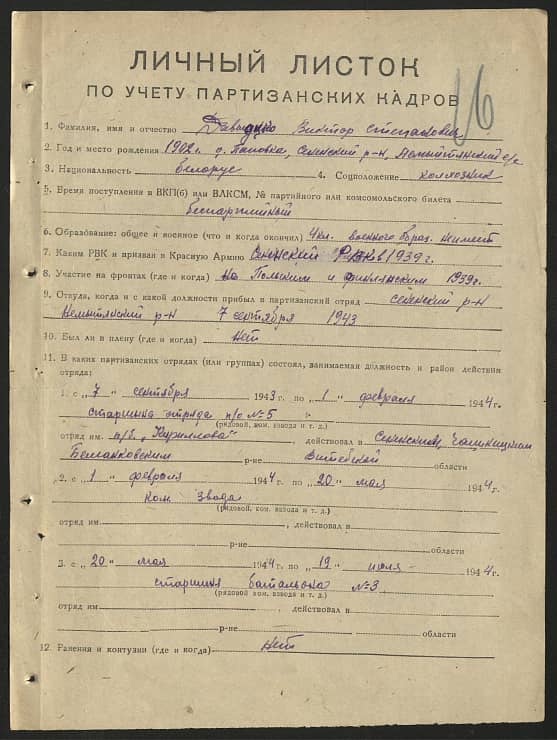 ЛИЧНЫЙ ЛИСТОК
ПО УЧЕТУ ПАРТИЗАНСКИХ КАДРОВ
16
1. Фамилия, имя и отчество Виктор Степанович
2. Год и место рождения 1902 г. д. Поповка, Сенненский р-н,
3. Национальность белорус 4. Соцположение колхозник
5. Время поступления в ВКП(б) или ВЛКСМ, № партийного или комсомольского билета
беспартийный
6. Образование: общее и военное (что и когда окончил) 4 кл. военного образ. не имеет
7. Каким РВК и призван в Красную Армию 1939 г.
8. Участие на фронтах (где и когда) на Польским и финлянским 1939 г.
9. Откуда, когда и с какой должности прибыл в партизанский отряд сененский р-н
р-н 7 сентября 1943
10. Был ли в плену (где и когда) нет
11. В каких партизанских отрядах (или группах) состоял, занимаемая должность и район действия
отряда:
1. с „7“ сентября 1943 г. по „1“ февраля 1944 г.
старшина отряда п/с № 5
(рядовой, ком. взвода и т. д.)
отряд им. п/б. „Кирилова“, действовал в Сененском,
р-не Витебской области
2. с „1“ февраля 1944 г. по „20“ мая 1944 г.
ком. звода
(рядовой, ком. взвода и т. д.)
отряд им., действовал в
р-не области
3. с „20“ мая 1944 г. по „19“ июля 1944 г.
старшина батальона № 3
(рядовой ком. взвода и т. д.)
отряд им., действовал в
р-не области
12. Ранения и контузии (где и когда) нет